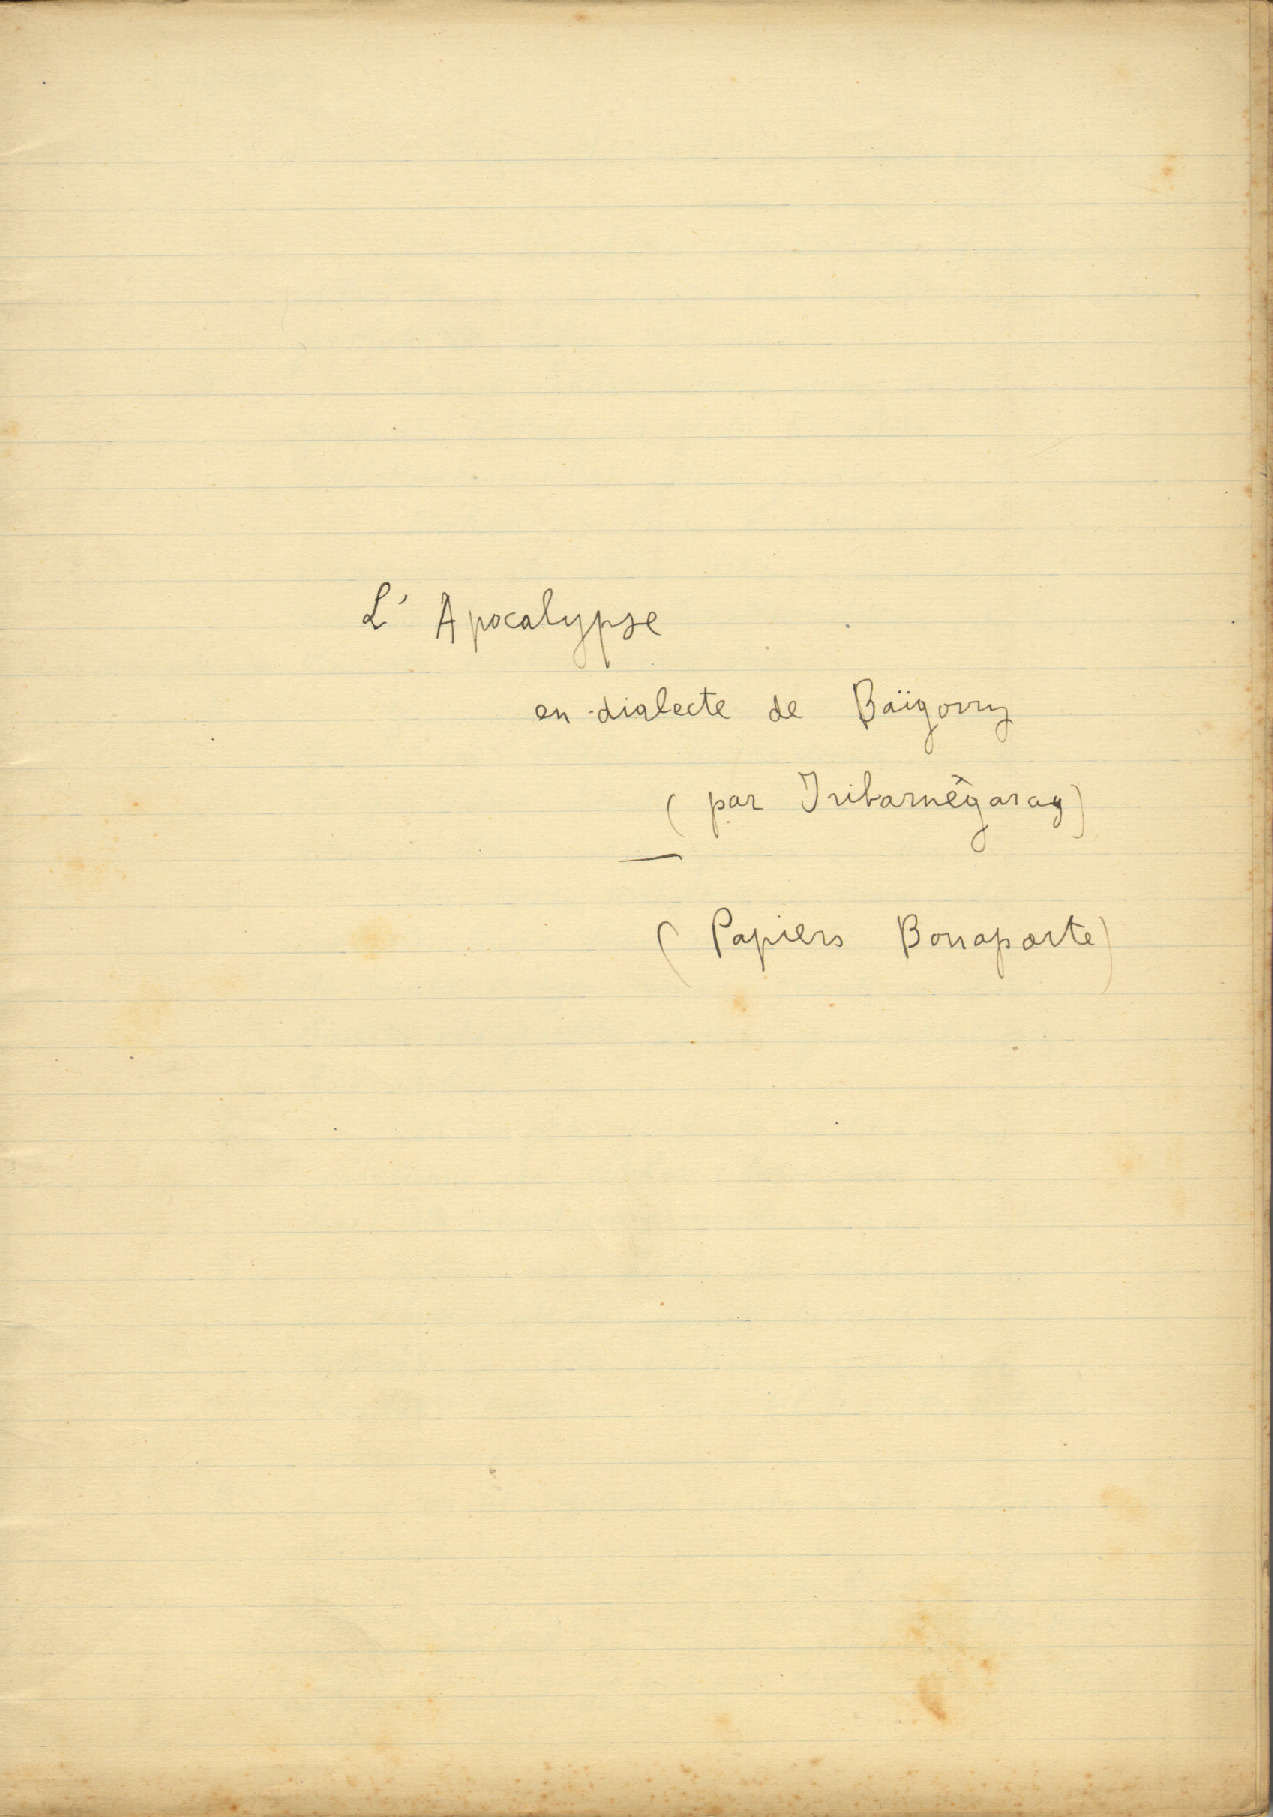 L' Apocalypse
en dialecte de Baïgorry
(par Iribarnègaray)
(Papiers Bonaparte)